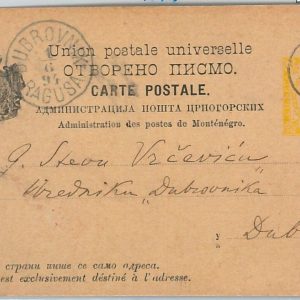 DUBROVNIK
RAGUSA
Union postale universelle
ОТВОРЕНО ПИСМО.
CARTE POSTALE.
АДМИНИСТРАЦИЈА ПОШТА ЦРНОГОРСКИХ
Administration des postes de Monténégro.
G. Stevu Vrčeviću
Uredniku „Dubrovnika"
У
Dub
страни пише се само адреса.
est exclusivement déstiné à l'adresse.